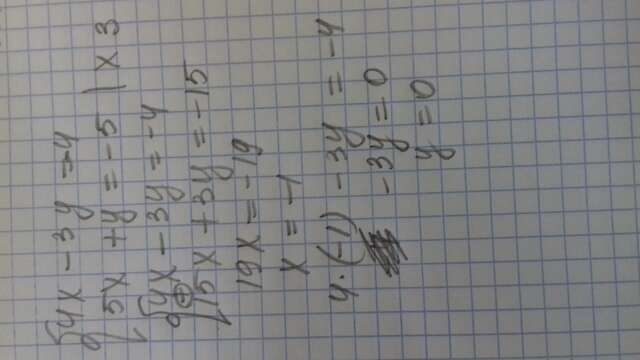 {4x - 3y = -4
{5x + y = -5 | × 3
{4x - 3y = -4
⊕
{15x + 3y = -15
19x = -19
x = -1
4·(-1) - 3y = -4
-3y = 0
y = 0